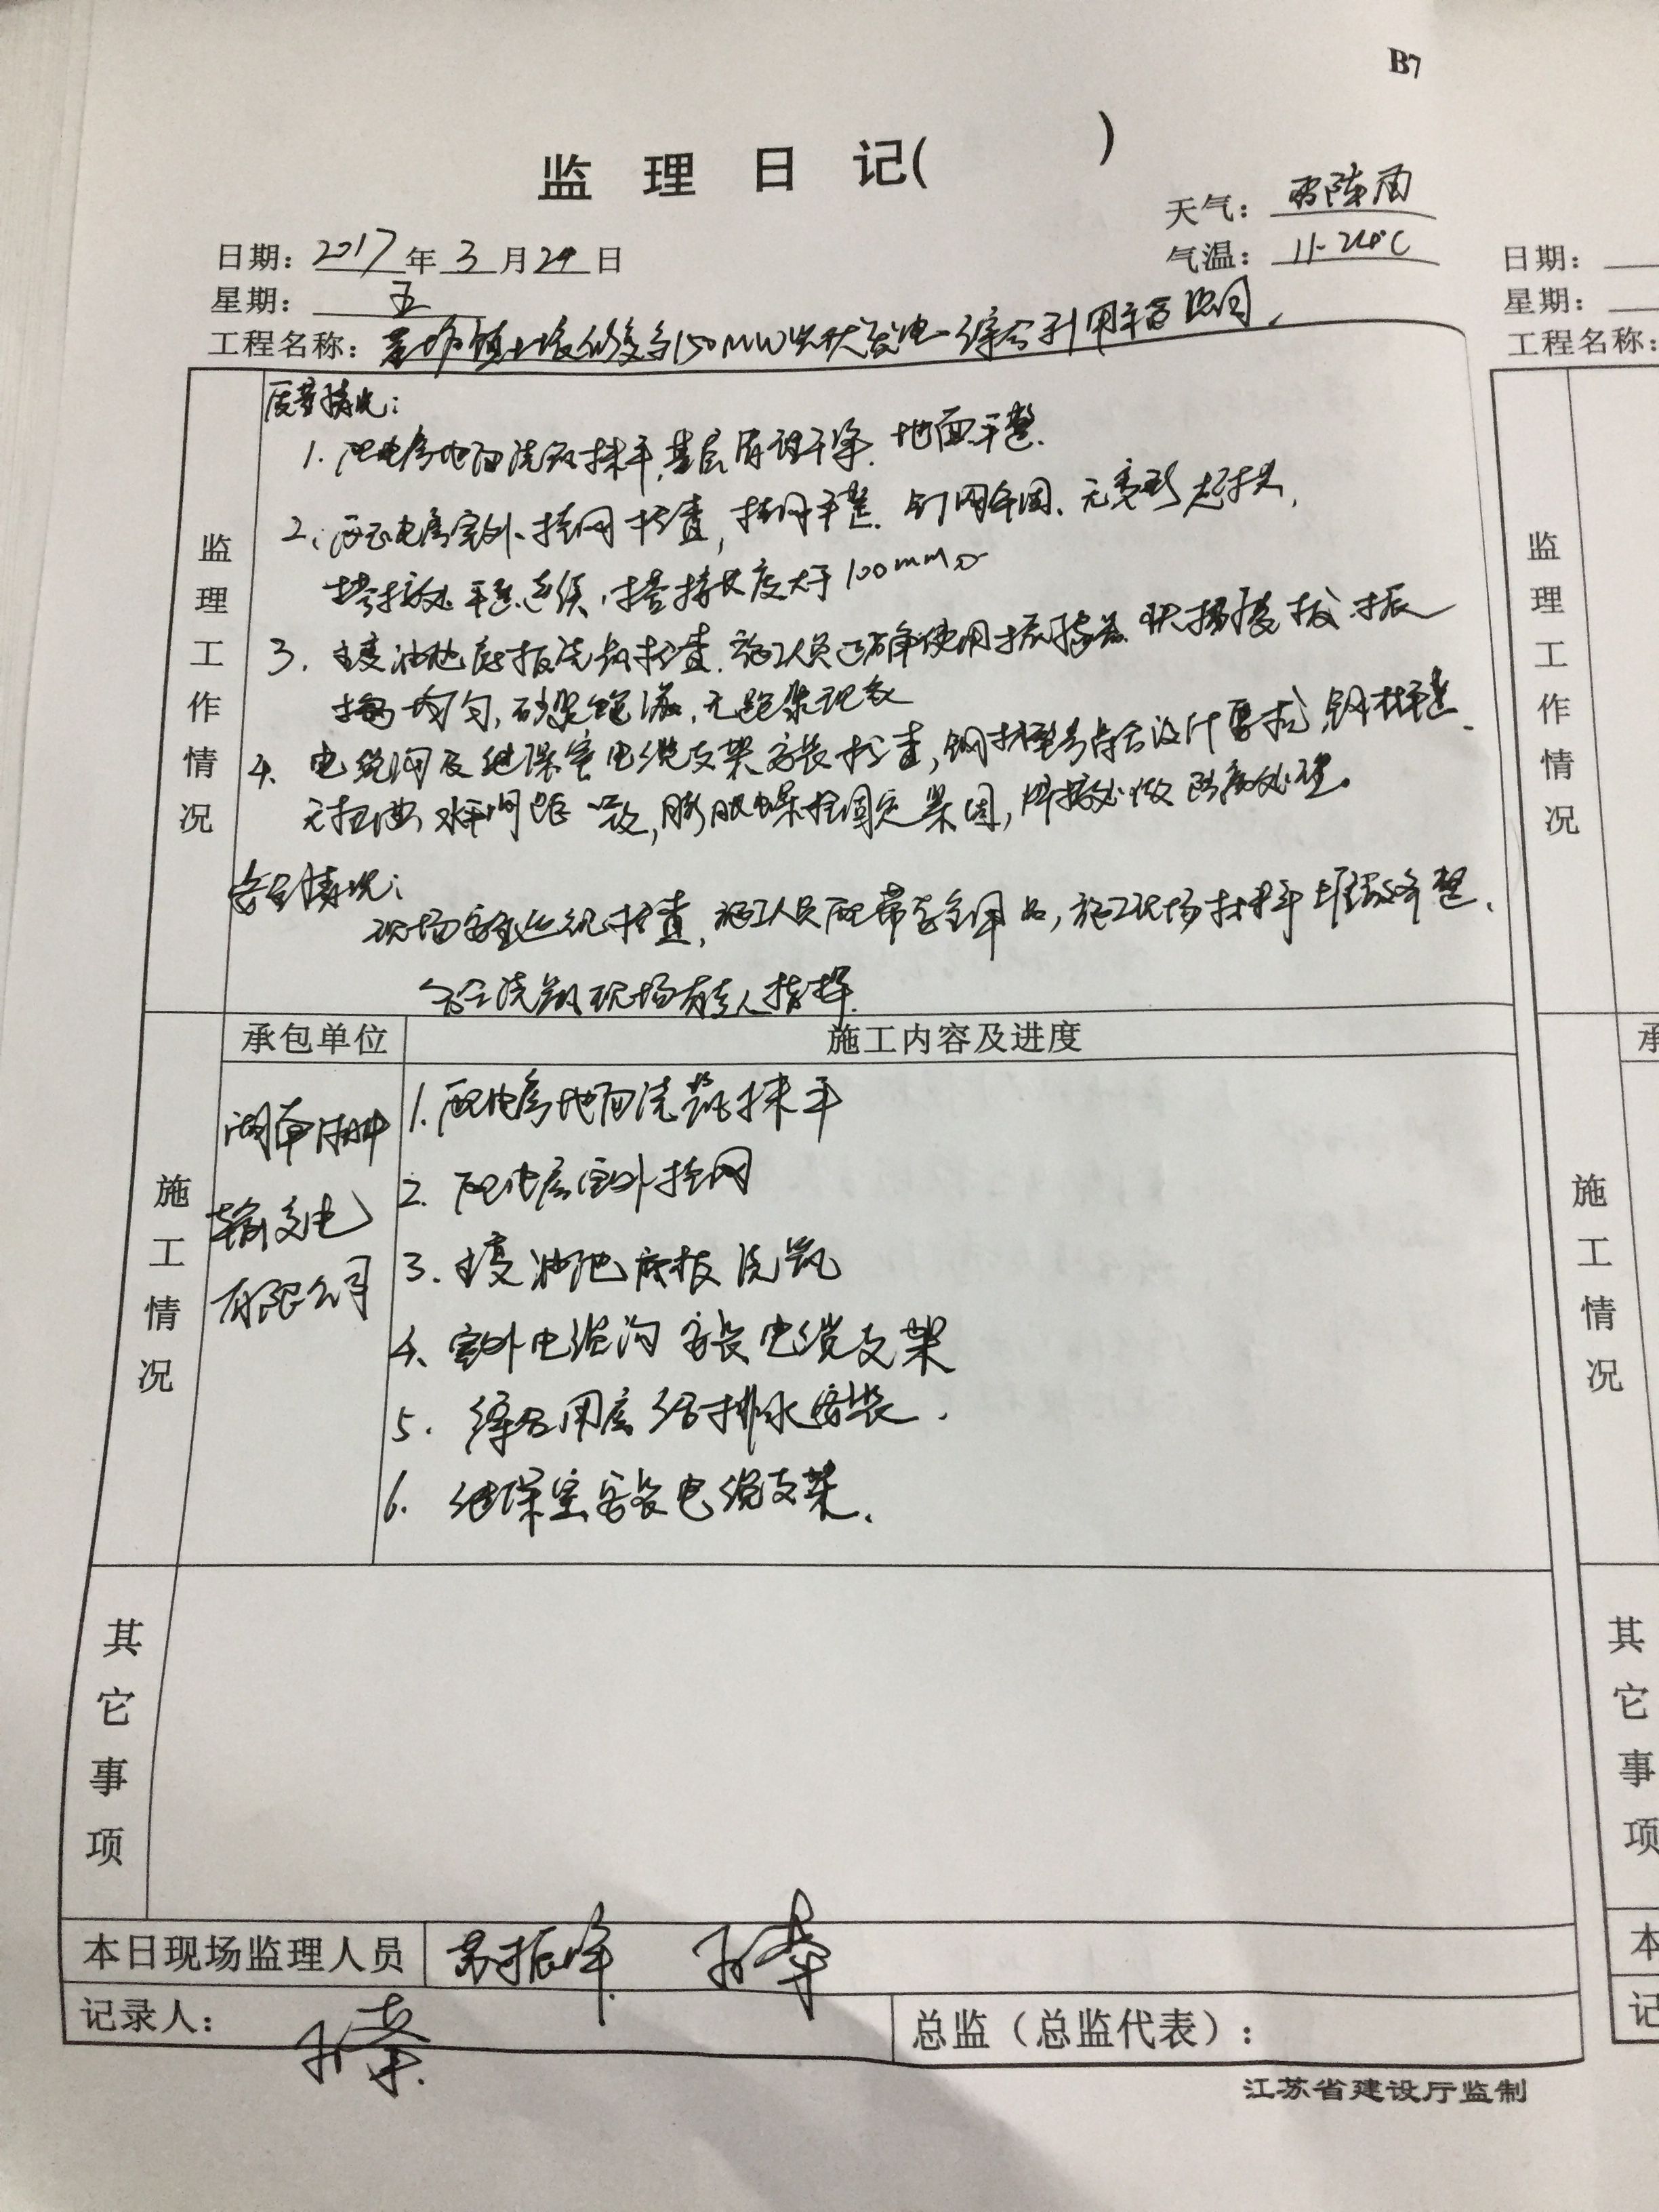 B7
监 理 日 记( )
天气: 雷阵雨
日期: 2017 年 3 月 24 日
气温: 11-20°C
星期: 五
工程名称: 镇土壤修复与150MW光伏发电综合利用项目
监理工作情况
质量情况:
1. 配电房地面浇筑抹平,基层清理干净、地面平整.
2. 配电房室外挂网检查,挂网平整、钉网牢固、无变形起拱,
搭接处平整连续,搭接长度大于100mm。
3. 主变油池底板浇筑检查.施工人员正确使用振捣器 快插慢拔 振
捣均匀,砂浆饱满,无跑浆现象
4. 电缆沟及继保室电缆支架安装检查,钢材型号符合设计要求 钢材平整
无扭曲 水平间距一致,膨胀螺栓固定紧固,焊接处做防腐处理。
安全情况:
现场安全巡视检查,施工人员配带安全用品,施工现场材料堆放整,
浇筑现场有专人指挥.
承包单位
施工内容及进度
施工情况
湖南
输变电
有限公司
1. 配电房地面浇筑抹平
2. 配电房室外挂网
3. 主变油池底板浇筑
4. 室外电缆沟安装电缆支架
5. 综合用房给排水安装.
6. 继保室安装电缆支架.
其它事项
本日现场监理人员
振峰
记录人:
总监(总监代表):
江苏省建设厅监制
日期:
星期:
工程名称:
监理工作情况
承
施工情况
其它事项
本
记